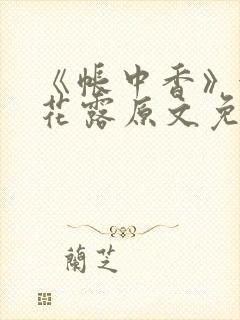 《帐中香》
花露原文免
蘭芝